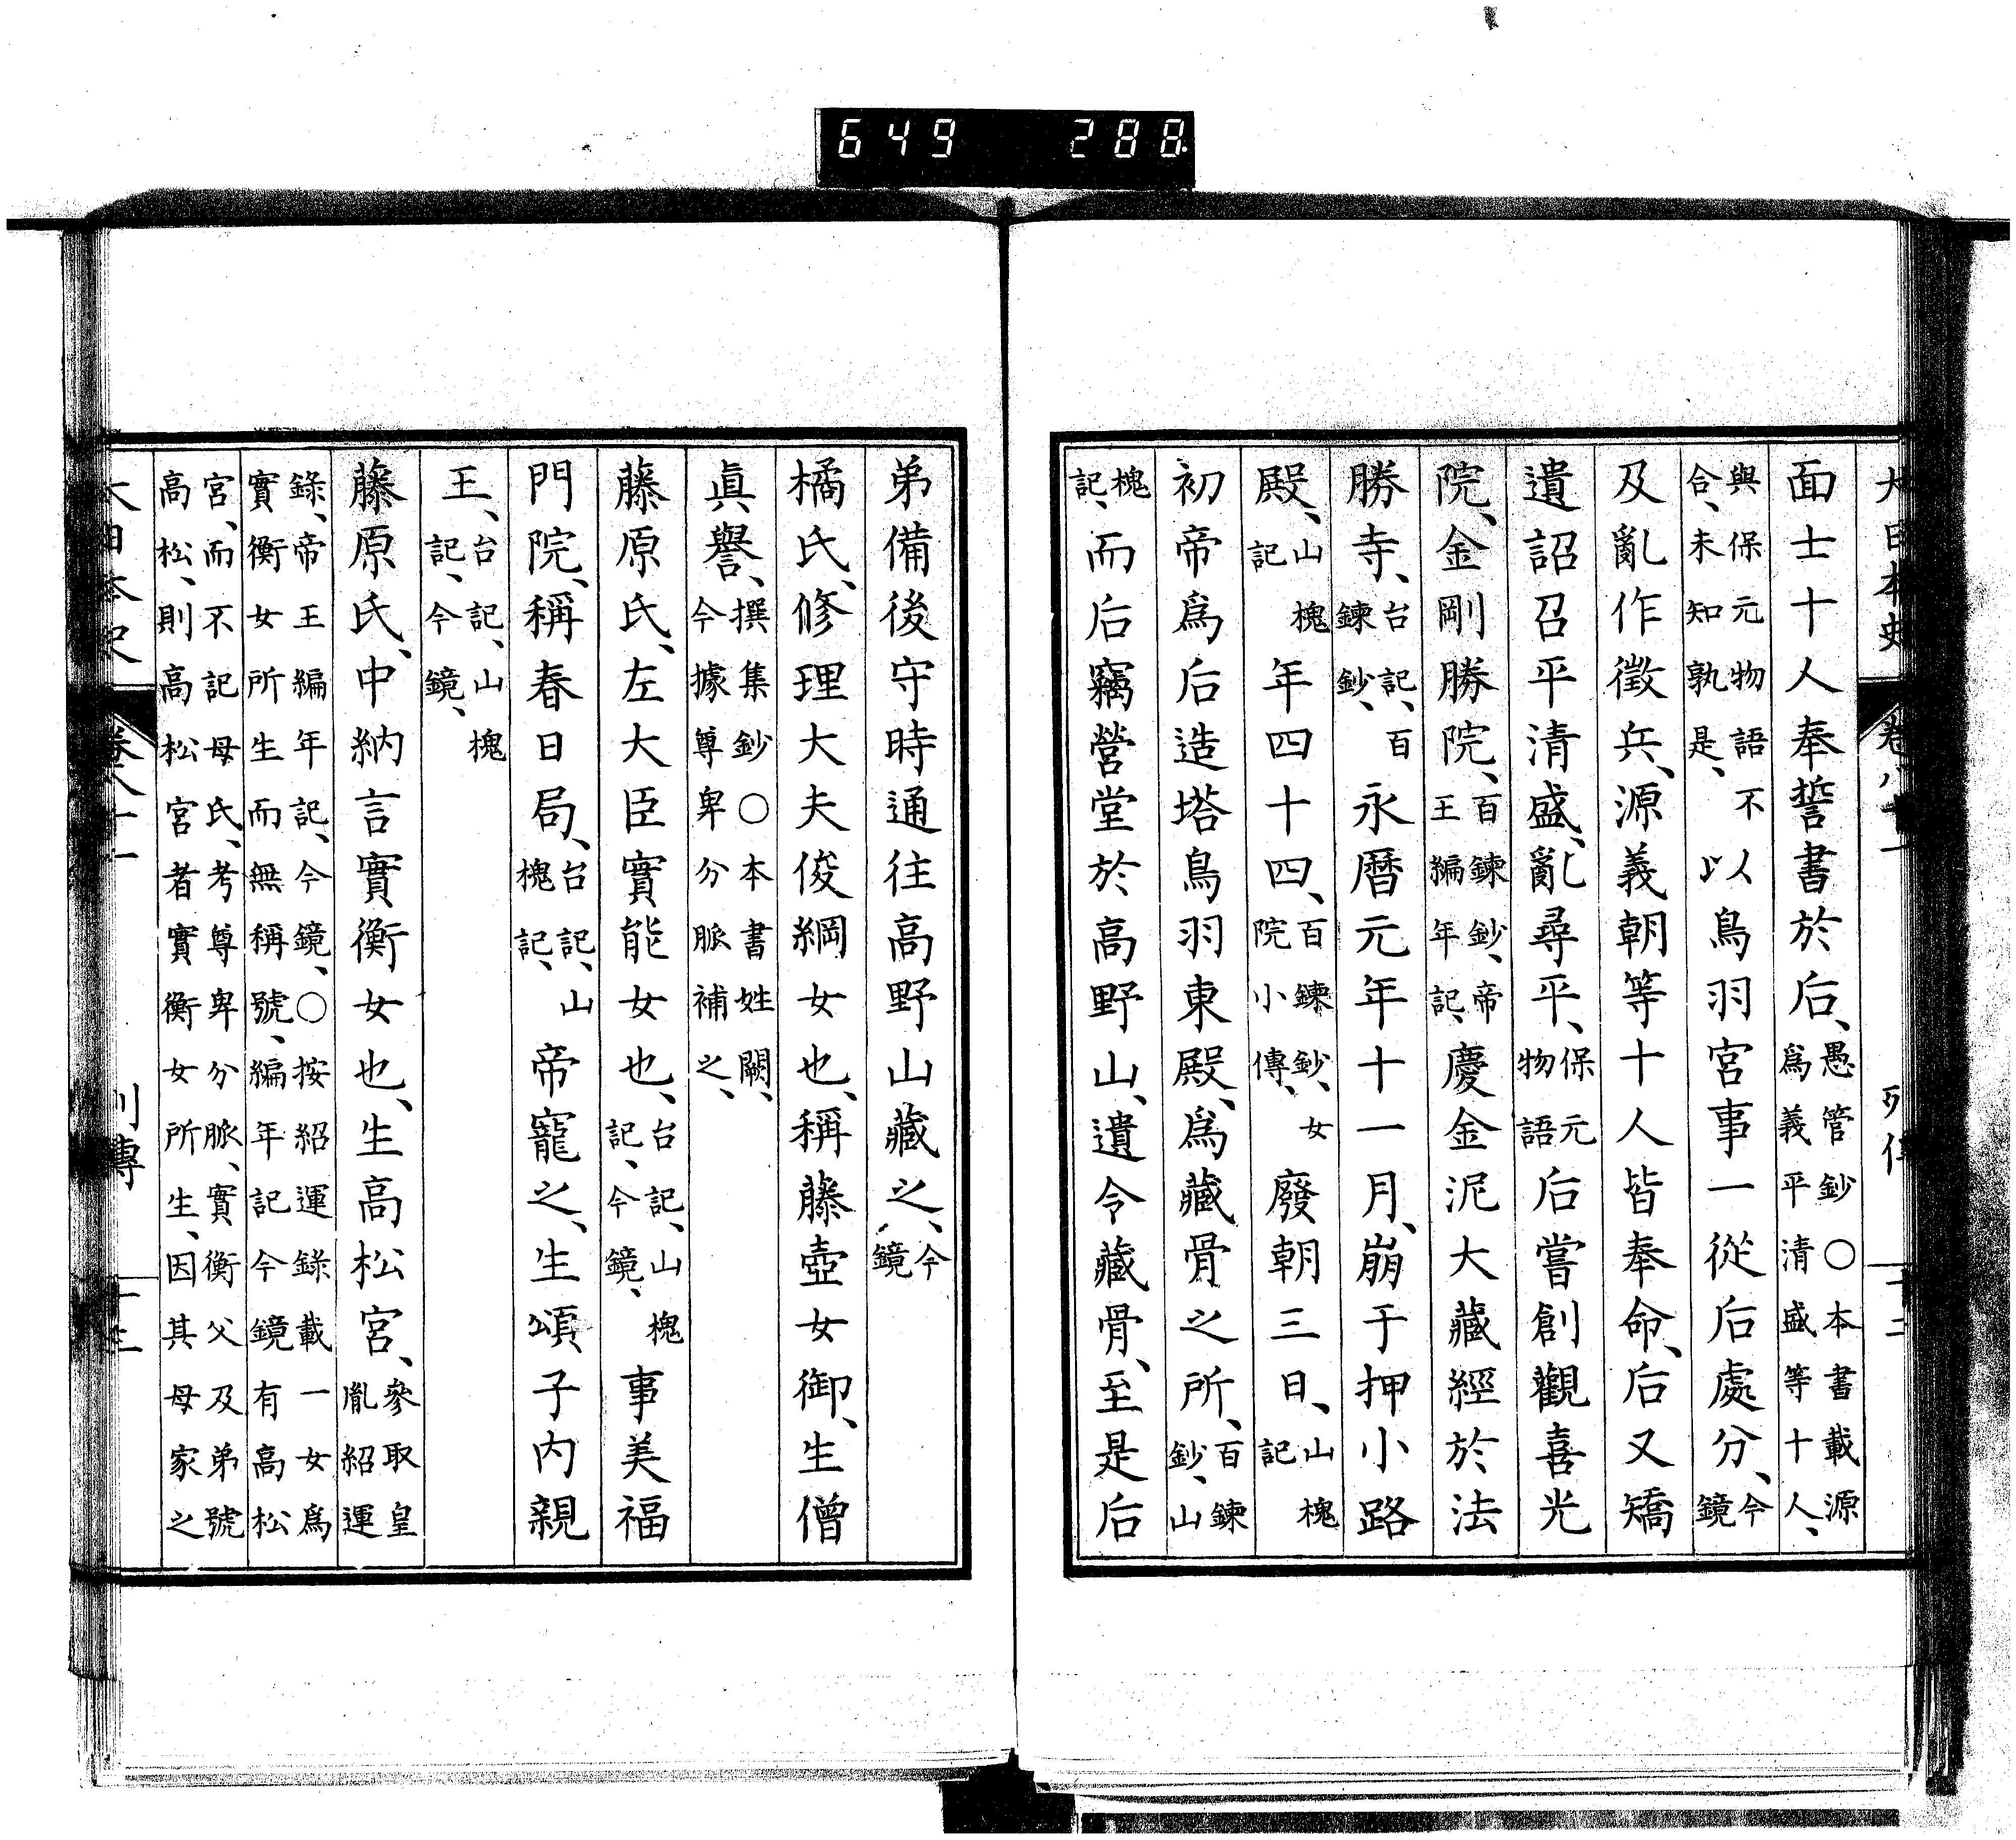 649 288
大日本史 卷八十一 列傳 十二
面士十人奉誓書於后、愚管鈔○本書載源爲義平清盛等十人、
與保元物語不合、未知孰是、以鳥羽宮事一從后處分、今鏡
及亂作徵兵、源義朝等十人皆奉命、后又矯
遺詔召平清盛、亂尋平、保元物語后嘗創觀喜光
院、金剛勝院、百鍊鈔、帝王編年記、慶金泥大藏經於法
勝寺、台記、百鍊鈔、永曆元年十一月、崩于押小路
殿、山槐記年四十四、百鍊鈔、女院小傳、廢朝三日、山槐記
初帝爲后造塔鳥羽東殿、爲藏骨之所、百鍊鈔、山
槐記、而后竊營堂於高野山、遺令藏骨、至是后
弟備後守時通往高野山藏之、今鏡
橘氏、修理大夫俊綱女也、稱藤壺女御、生僧
眞譽、撰集鈔○本書姓闕、今據尊卑分脈補之、
藤原氏、左大臣實能女也、台記、山槐記、今鏡、事美福
門院、稱春日局、台記、山槐記、帝寵之、生頌子內親
王、台記、山槐記、今鏡、
藤原氏、中納言實衡女也、生高松宮、參取皇胤紹運
錄、帝王編年記、今鏡、○按紹運錄載一女爲實衡女所生而無稱號、編年記今鏡有高松
宮、而不記母氏、考尊卑分脈、實衡父及弟號高松、則高松宮者實衡女所生、因其母家之
大日本史 卷八十一 列傳 十三